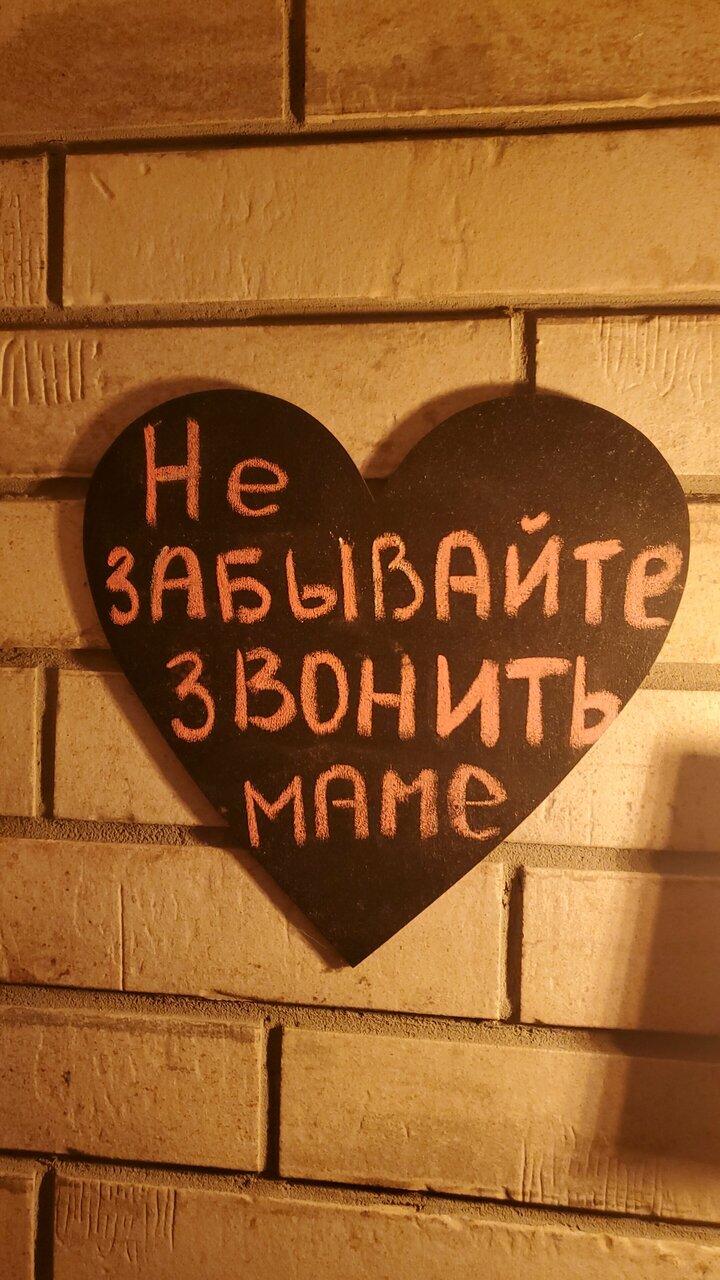 Не
ЗАБЫВАЙТЕ
ЗВОНИТЬ
МАМЕ